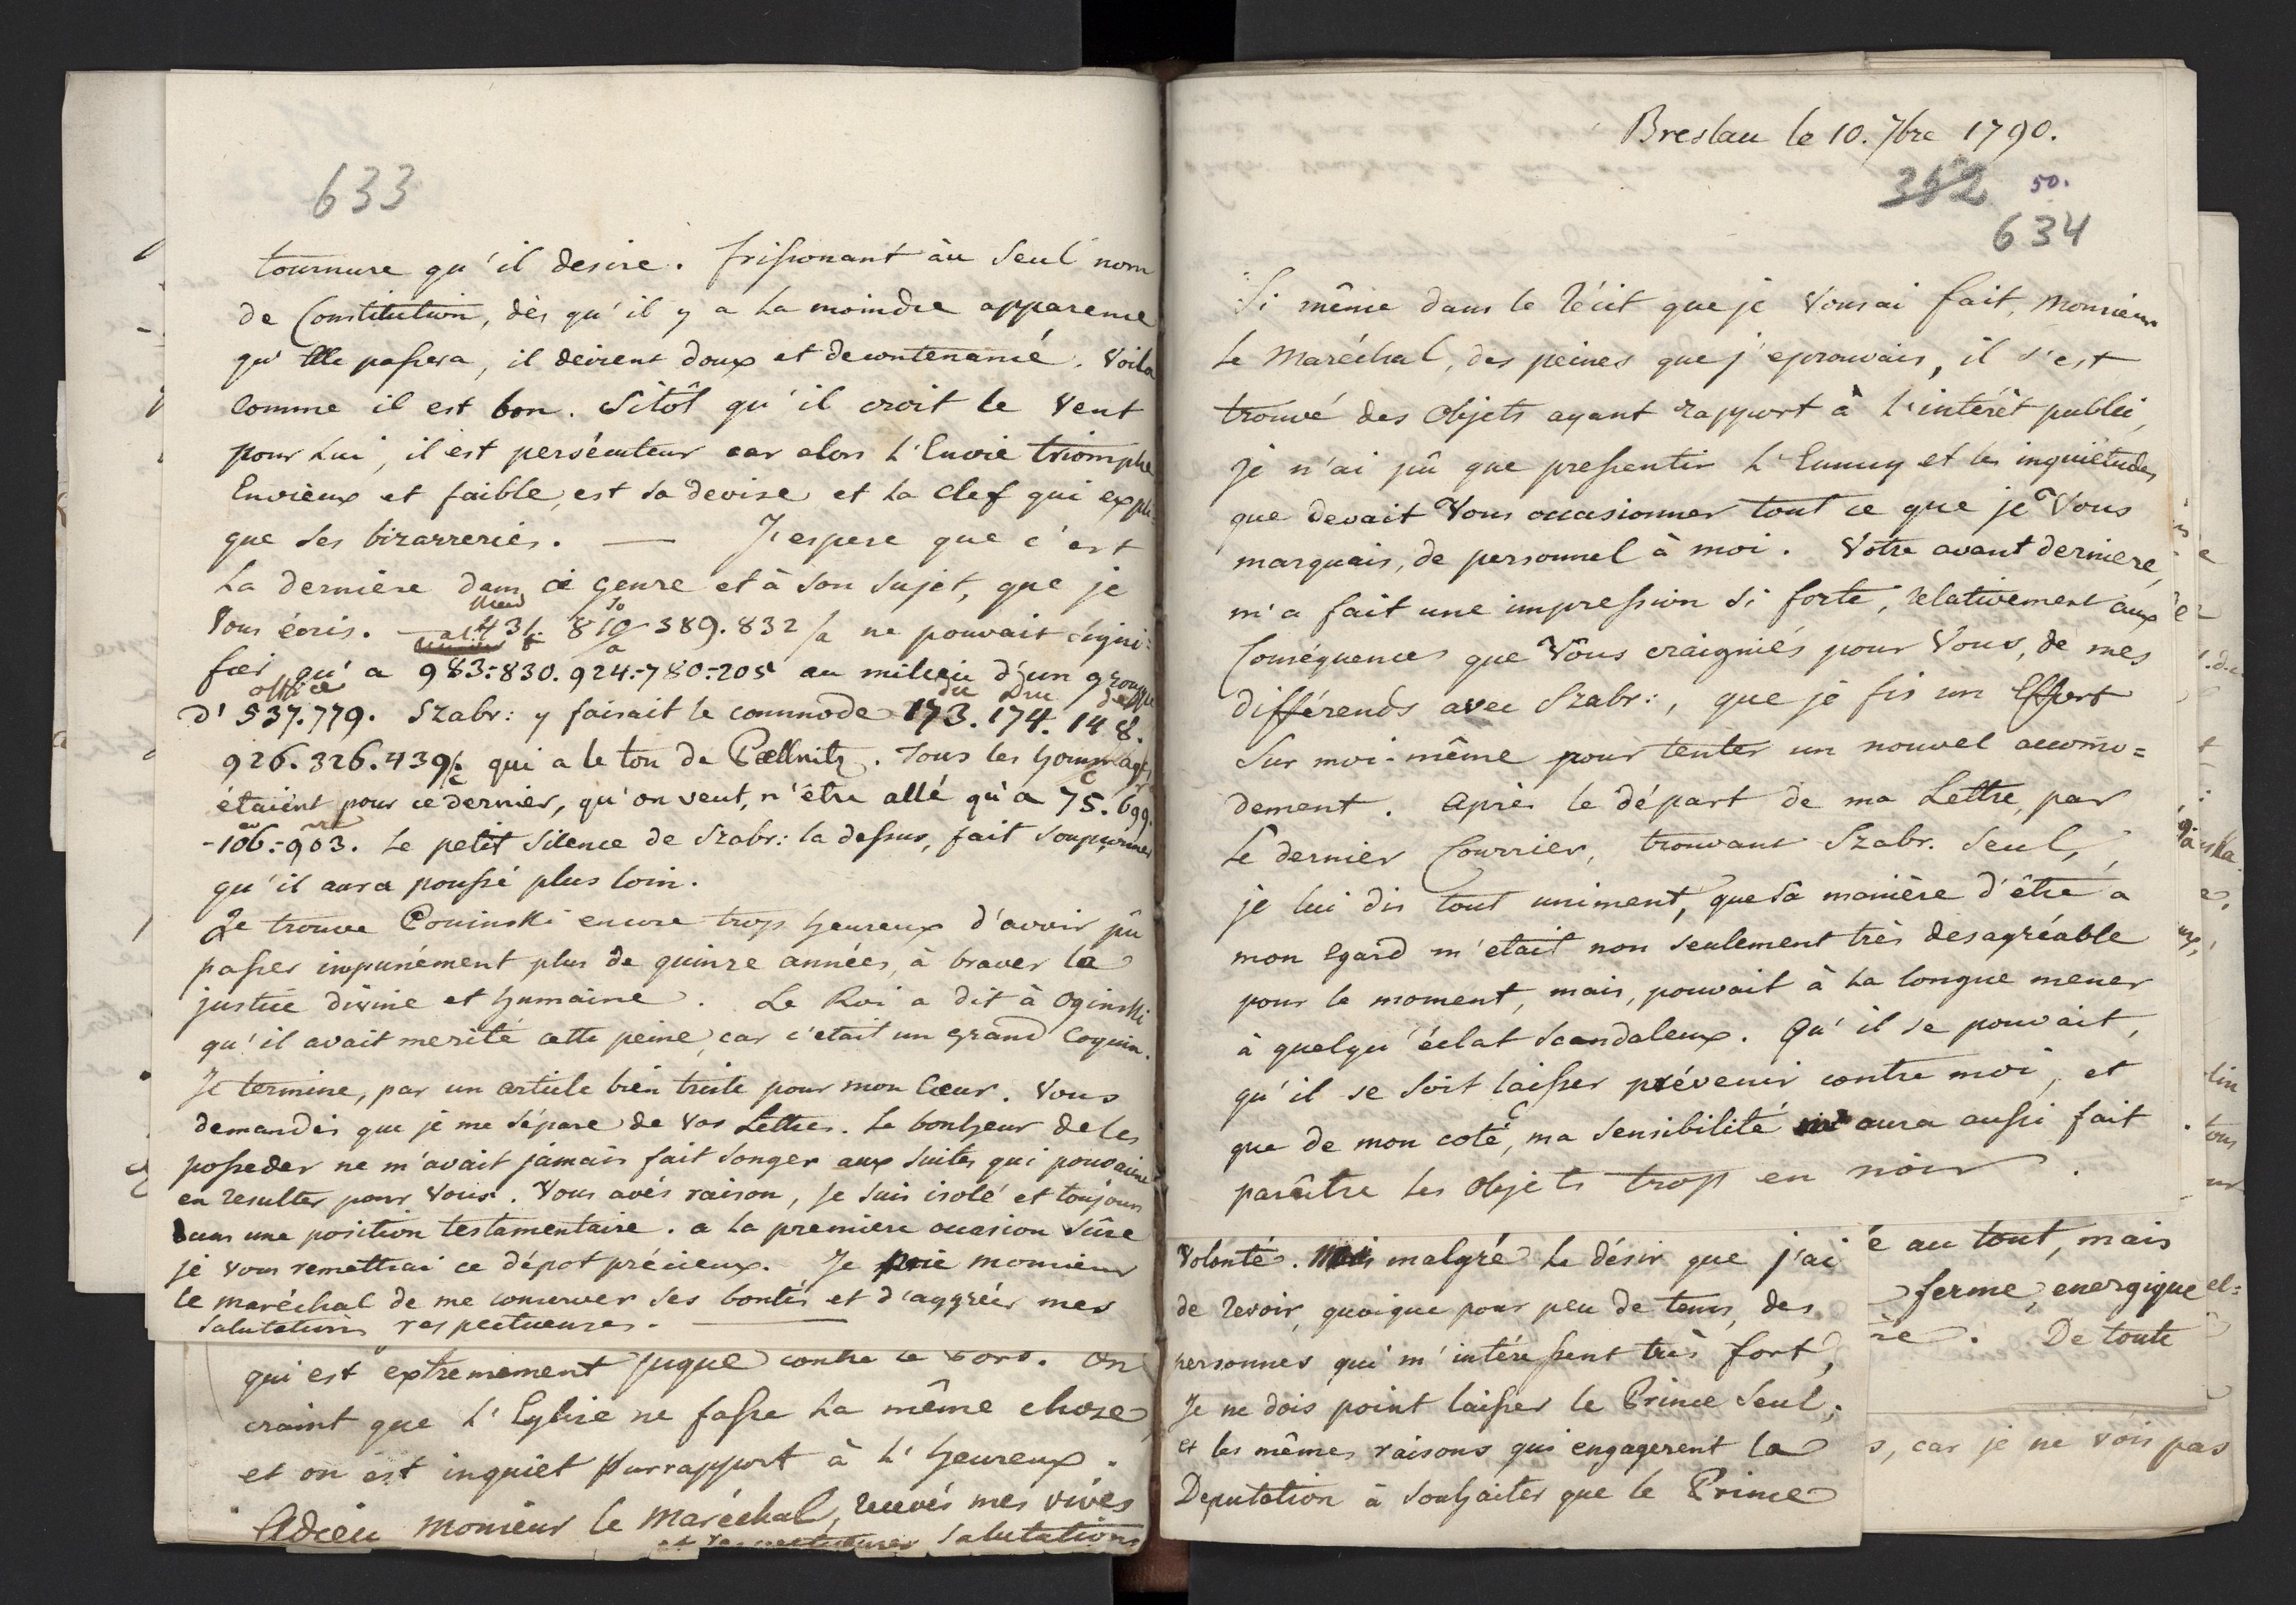 633
tournure qu'il desire. frissonant âu seul nom
de Constitution, dès qu'il y a La moindre apparence
qu'Elle passera, il devient doux et decontenancé. Voila
comme il est bon. Sitôt qu'il croit le Vent
pour Lui, il est persécuteur car alors L'Envie triomphe
Envieux et faible, est sa devise et La Clef qui expli=
que ses bizarreries. — J'espere que c'est
La dernière dans ce genre et à son sujet, que je
Vous écris. 431. 810 389.832 ne pouvait signi=
fier qu'a 983:830.924.-780:-205 au milieu d'un grouppe
office du Dru
d'537.779. Szabr: y faisait le commode 173.174.148.
926.326.439 qui a le ton de Pœllnitz. Tous les hommages
étaient pour ce dernier, qu'on veut, n'être allé qu'a 75.699.
-106:-903. Le petit silence de Szabr: la dessus, fait soupçonner
qu'il aura poussé plus loin.
Je trouve Poninski encore trop heureux d'avoir pû
passer impunément plus de quinze années, à braver la
justice divine et humaine. Le Roi a dit à Oginski
qu'il avait merité cette peine, car c'etait un grand Coquin.
Je termine, par un article bien triste pour mon Cœur. Vous
demandés que je me sépare de Vos Lettres. Le bonheur de les
posseder ne m'avait jamais fait songer aux suites qui pouvaient
en resulter pour Vous. Vous avés raison, je suis isolé et toujours
dans une position testamentaire. a La premiere occasion Sûre
je Vous remettrai ce dépot précieux. Je prie monsieur
le maréchal de me conserver ses bontés et d'aggréer mes
salutations respectueuses.
qui est extremement contre ce Bord. On
craint que L'Eglise ne fasse La même chose
et on est inquiet par rapport à L'heureux.
Adieu Monsieur le Maréchal, recevés mes vives
et respectueuses salutations
Breslau le 10. 7bre 1790.
352 50.
634
Si même dans le Récit que je Vous ai fait, Monsieur
Le Maréchal, des peines que j'eprouvais, il s'est
trouvé des Objets ayant rapport à L'intérêt public,
je n'ai pû que pressentir L'Ennuy et les inquiétudes
que devait Vous occasionner tout ce que je Vous
marquais, de personnel à moi. Votre avant derniere,
m'a fait une impression si forte, relativement aux
Conséquences que Vous craigniés pour Vous, de mes
différends avec Szabr:, que je fis un Effort
Sur moi-même pour tenter un nouvel accomo=
dement. après le départ de ma Lettre, par
Le dernier Courrier, trouvant Szabr. Seul,
je lui dis tout uniment, que sa manière d'être a
mon egard m'etait non seulement très desagréable
pour le moment, mais, pouvait à La longue mener
à quelqu'éclat scandaleux. Qu'il se pouvait,
qu'il se soit laisser prévenir contre moi, et
que de mon coté, ma sensibilité aura aussi fait
parâitre les Objets trop en noir.
Volonté. Mais malgré Le désir que j'ai
de revoir, quoique pour peu de tems, des
personnes qui m'intéressent très fort,
Je ne dois point laisser le Prince Seul,
et les mêmes raisons qui engagerent la
Deputation à souhaiter que le Prince
é au tout, mais
ferme, energique
De toute
s, car je ne vois pas